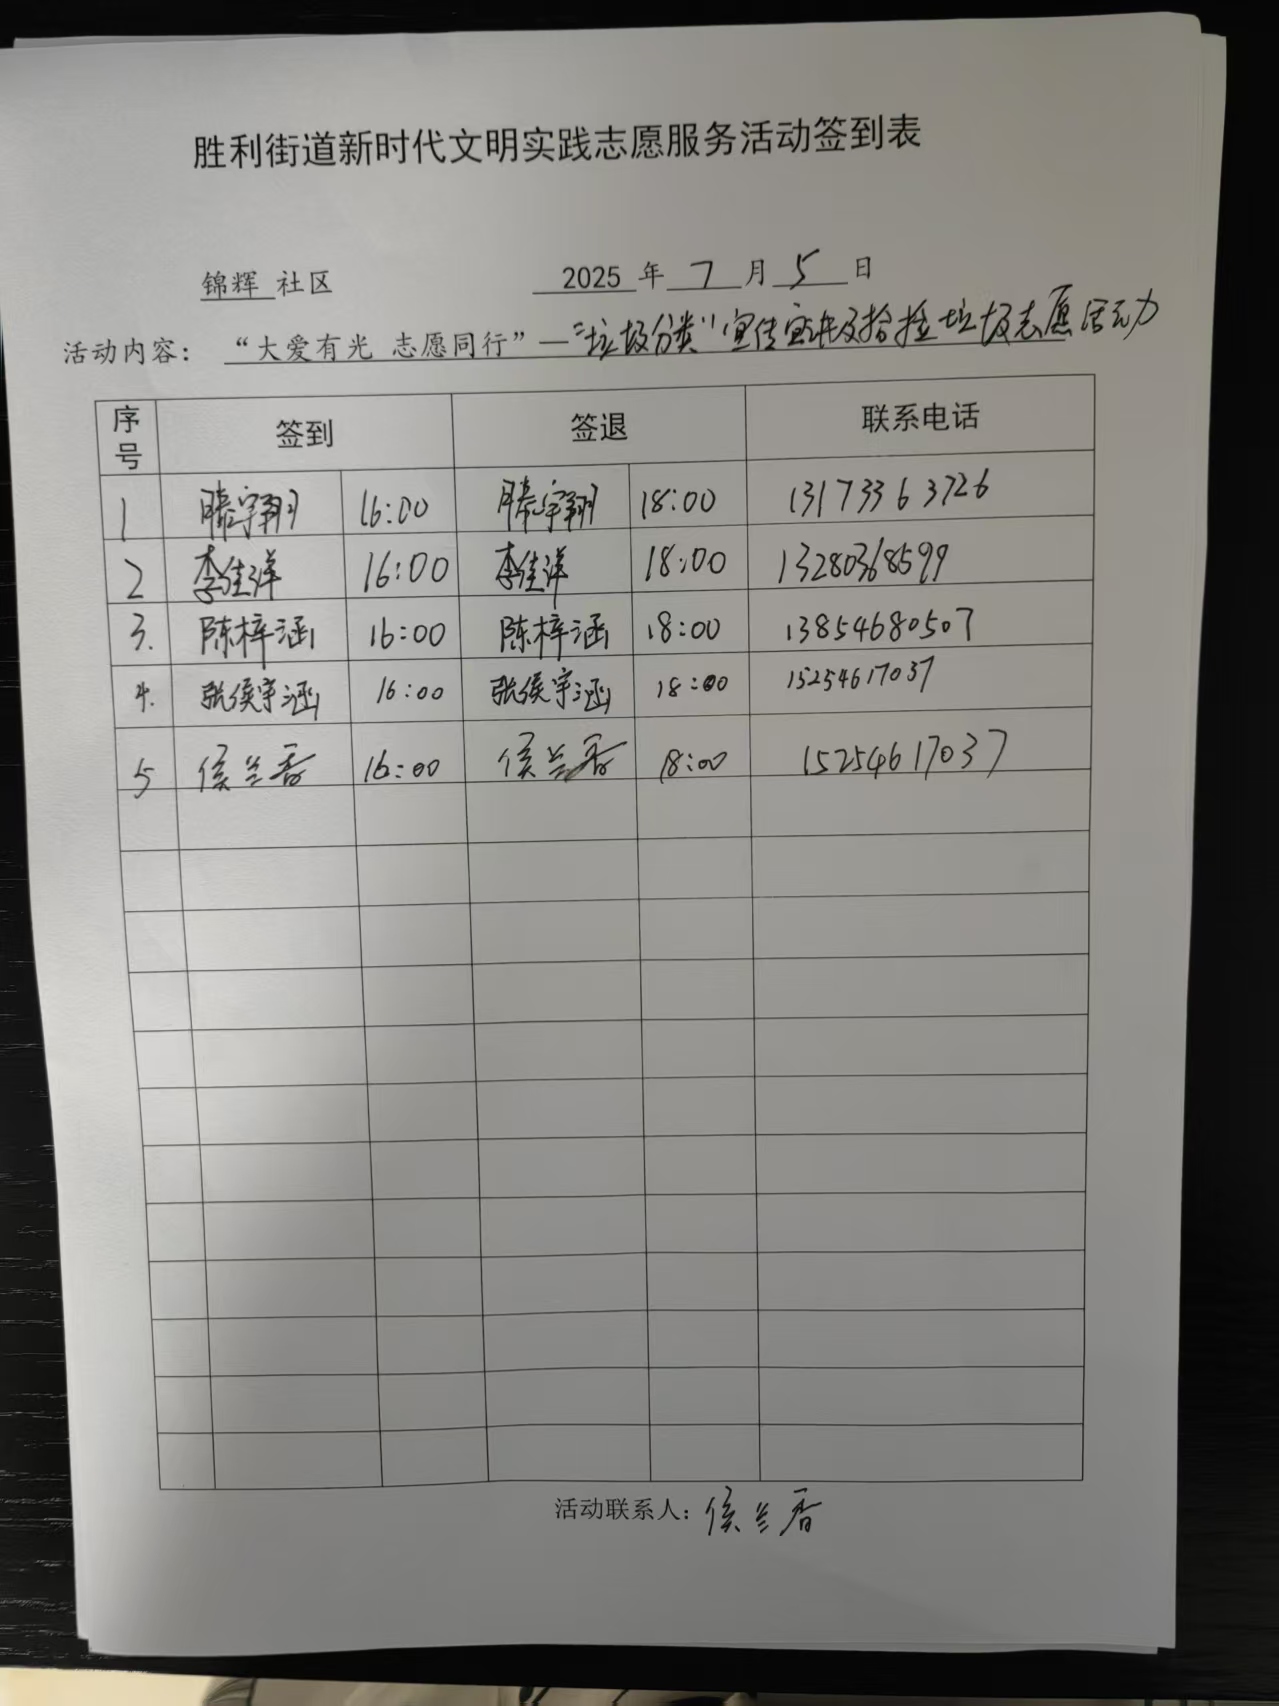 胜利街道新时代文明实践志愿服务活动签到表
锦辉 社区 2025 年 7 月 5 日
活动内容：“大爱有光 志愿同行”—“垃圾分类”宣传宣讲及捡拾垃圾志愿活动
序号 签到 签退 联系电话
1 滕宇翔 16:00 滕宇翔 18:00 13173363726
2 李佳洋 16:00 李佳洋 18:00 13280368599
3. 陈梓涵 16:00 陈梓涵 18:00 13854680507
4. 张侯宇涵 16:00 张侯宇涵 18:00 15254617037
5 侯兰香 16:00 侯兰香 18:00 15254617037
活动联系人：侯兰香